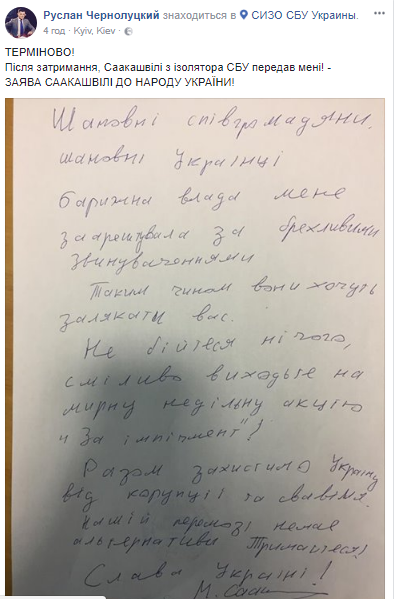 Руслан Чернолуцкий находиться в СИЗО СБУ Украины.
4 год · Kyiv, Kiev ·
ТЕРМІНОВО!
Після затримання, Саакашвілі з ізолятора СБУ передав мені! -
ЗАЯВА СААКАШВІЛІ ДО НАРОДУ УКРАЇНИ!
Шановні співгромадяни,
шановні Українці
барижна влада мене
заарештувала за брехливими
звинуваченнями
Таким чином вони хочуть
залякати вас.
Не бійтеся нічого,
сміливо виходьте на
мирну недільну акцію
"За імпічмент"!
Разом захистимо Україну
від корупції та свавілля.
Нашій перемозі немає
альтернативи Тримайтеся!
Слава Україні!
М. Саак